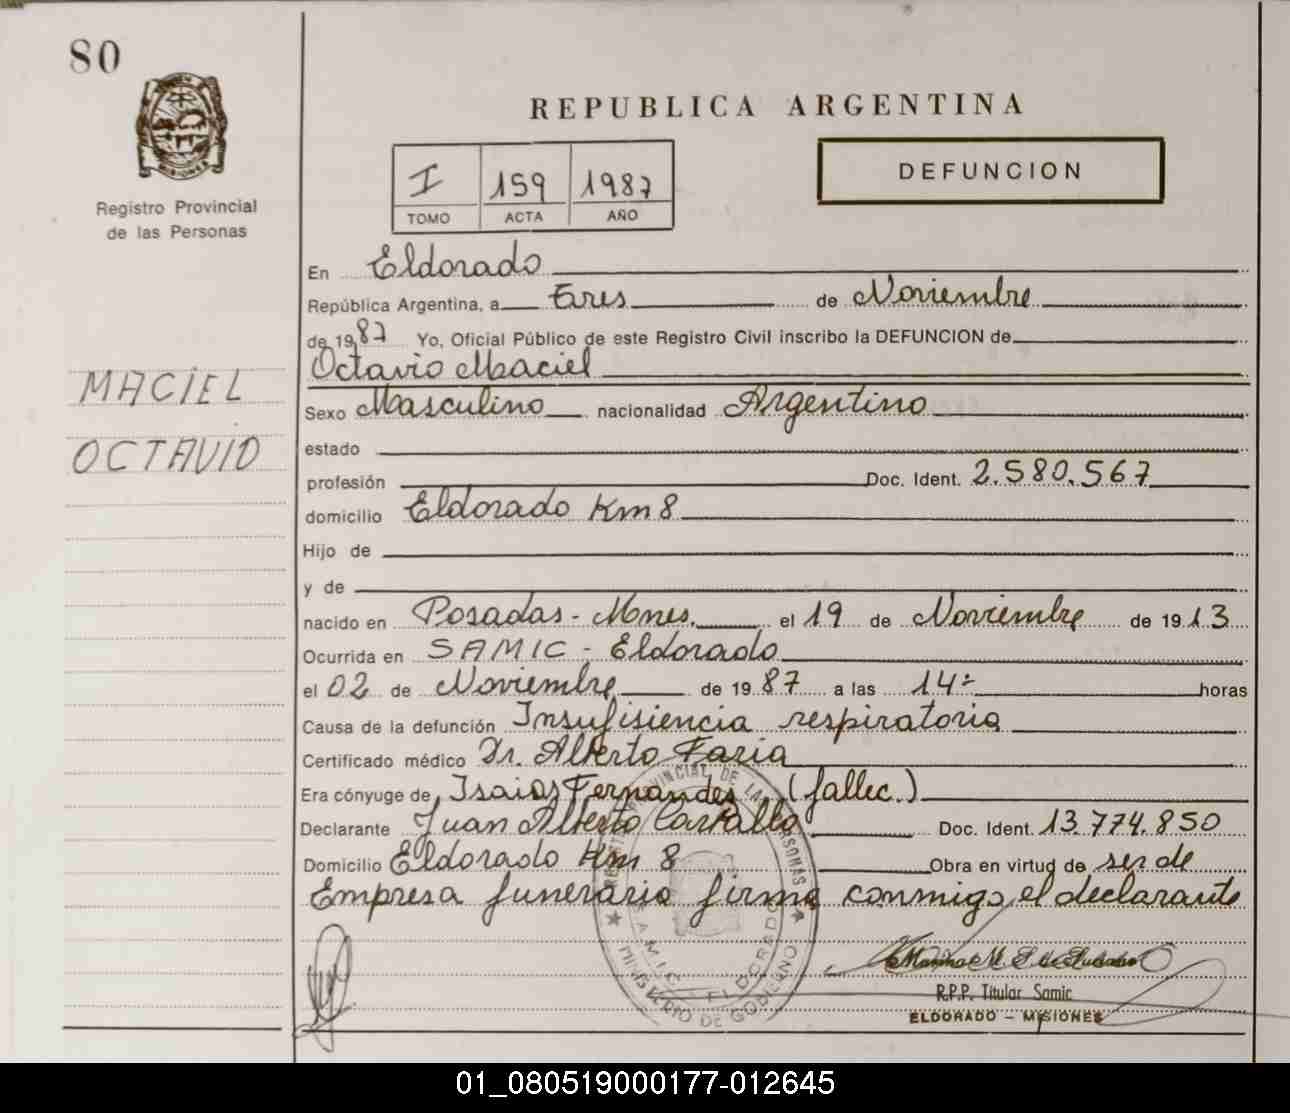 80
MISIONES
Registro Provincial
de las Personas
REPUBLICA ARGENTINA
I 159 1987
TOMO ACTA AÑO
DEFUNCION
En Eldorado
República Argentina, a Tres de Noviembre
de 1987 Yo, Oficial Público de este Registro Civil inscribo la DEFUNCION de
Octavio Maciel
MACIEL
OCTAVIO
Sexo Masculino nacionalidad Argentino
estado
profesión Doc. Ident. 2.580.567
domicilio Eldorado Km 8
Hijo de
y de
nacido en Posadas - Mnes. el 19 de Noviembre de 1913
Ocurrida en SAMIC - Eldorado
el 02 de Noviembre de 1987 a las 14- horas
Causa de la defunción Insufisiencia respiratoria
Certificado médico Dr. Alberto Faria
Era cónyuge de Isaias Fernandes (fallec.)
Declarante Juan Alberto Carballo Doc. Ident. 13.774.850
Domicilio Eldorado Km 8 Obra en virtud de ser de
Empresa funeraria firma conmigo el declarante
PROVINCIAL DE LAS PERSONAS
SAMIC - ELDORADO
MINISTERIO DE GOBIERNO
R.P.P. Titular Samic
ELDORADO - MISIONES
01_080519000177-012645